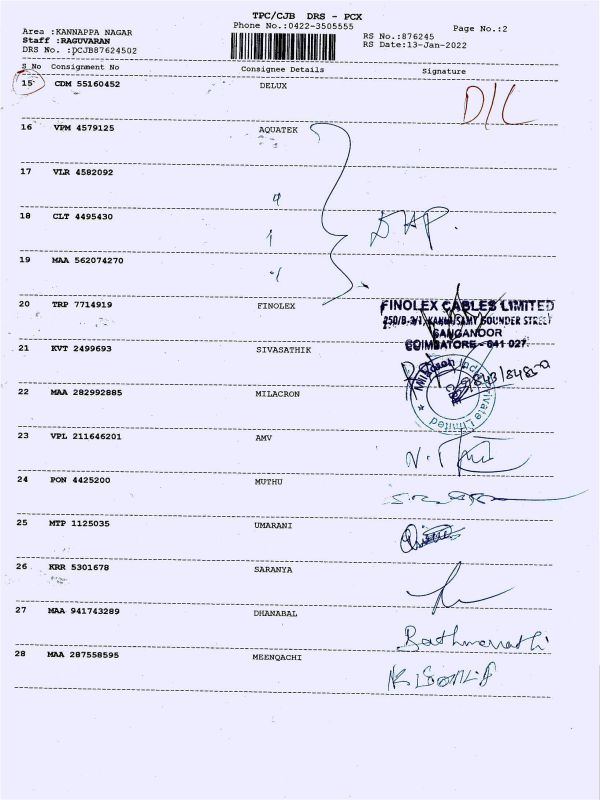 TPC/CJB DRS - PCX
Phone No.:0422-3505555
Page No.:2
Area :KANNAPPA NAGAR
Staff :RAGUVARAN
DRS No. :PCJB87624502
RS No.:876245
RS Date:13-Jan-2022
S No Consignment No Consignee Details Signature
15 CDM 55160452 DELUX D/L
16 VPM 4579125 AQUATEK
17 VLR 4582092
18 CLT 4495430
19 MAA 562074270
20 TRP 7714919 FINOLEX
FINOLEX CABLES LIMITED
250/B-3/1, KANNUSAMY GOUNDER STREET
SANGANOOR
COIMBATORE - 641 027.
21 KVT 2499693 SIVASATHIK
22 MAA 292992885 MILACRON
Private Limited
23 VPL 211646201 AMV
24 PON 4425200 MUTHU
25 MTP 1125035 UMARANI
26 KRR 5301678 SARANYA
27 MAA 941743289 DHANABAL
28 MAA 287558595 MEENQACHI